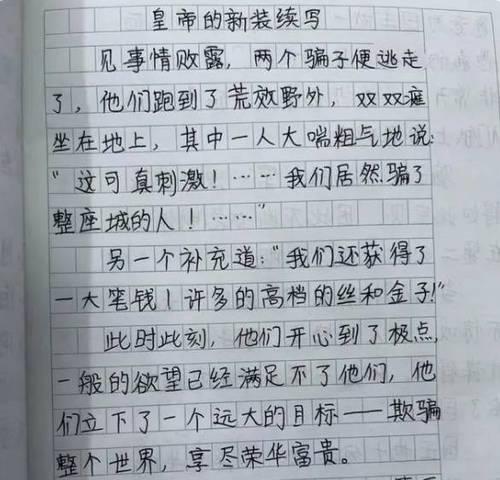 皇帝的新装续写
见事情败露，两个骗子便逃走
了，他们跑到了荒效野外，双双瘫
坐在地上，其中一人大喘粗气地说：
“这可真刺激！……我们居然骗了
整座城的人！……”
另一个补充道：“我们还获得了
一大笔钱！许多的高档的丝和金子！”
此时此刻，他们开心到了极点，
一般的欲望已经满足不了他们，他
们立下了一个远大的目标——欺骗
整个世界，享尽荣华富贵。